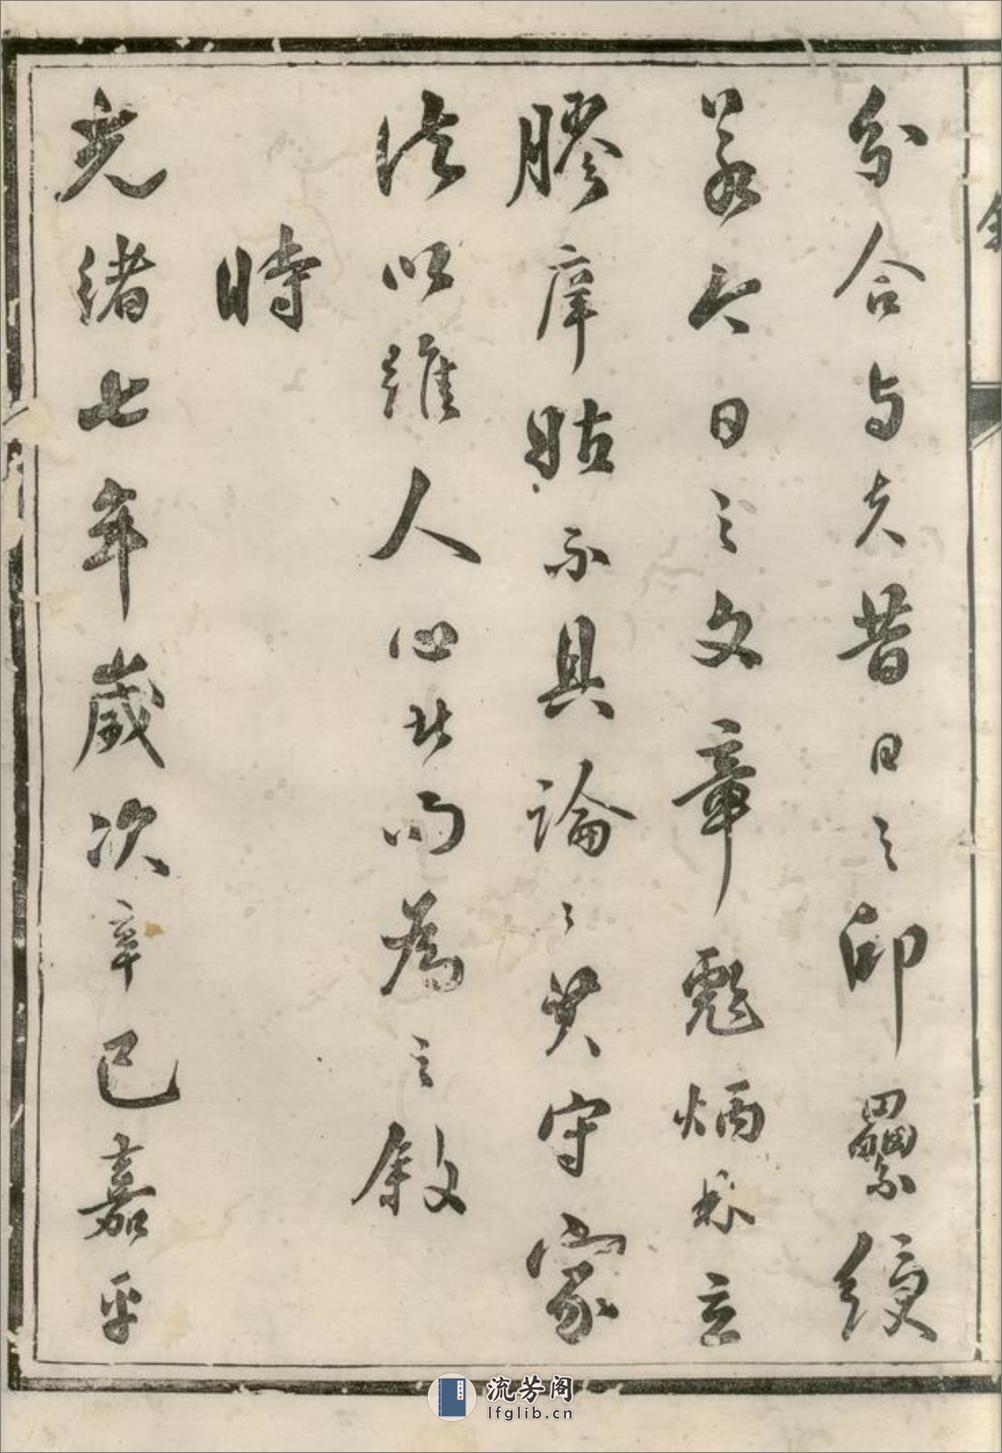 分合与夫昔日之印纍綬
若今日之文章彪炳林立
膠庠姑不具論論其守家
法以維人心者而為之敘
時
光緒七年歲次辛巳嘉平
流芳阁
lfglib.cn